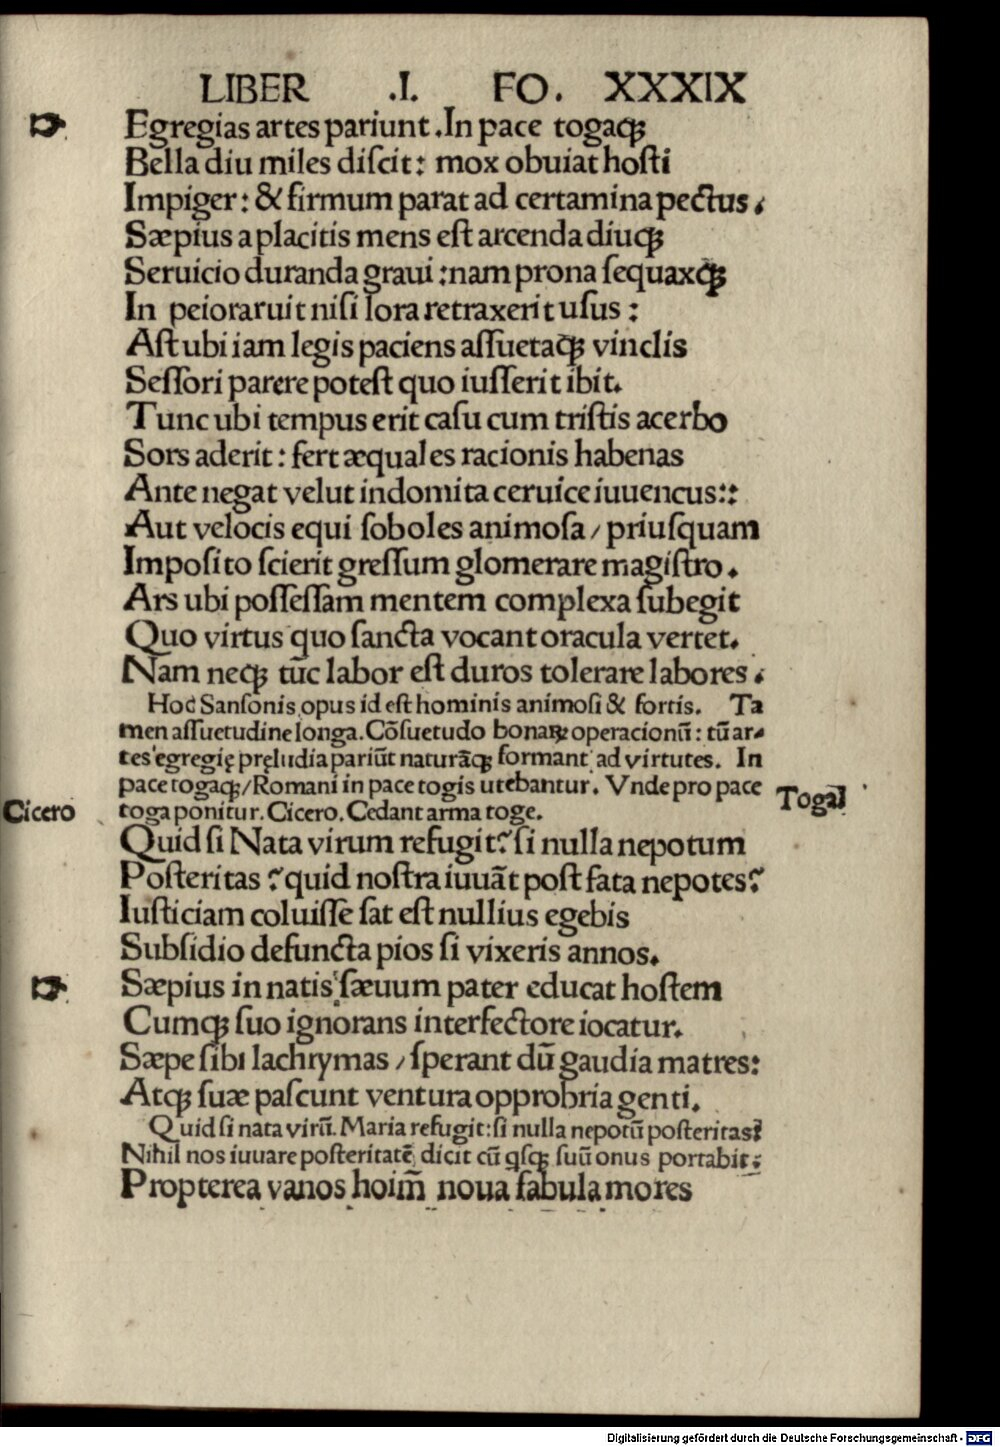 LIBER .I. FO. XXXIX
Egregias artes pariunt .In pace togaqꝫ
Bella diu miles diſcit: mox obuiat hoſti
Impiger: & firmum parat ad certamina pectus .
Sæpius a placitis mens eſt arcenda diuqꝫ
Seruicio duranda graui :nam prona ſequaxqꝫ
In peiora ruit niſi lora retraxerit uſus :
Aſt ubi iam legis paciens aſſuetaqꝫ vinclis
Seſſori parere poteſt quo iuſſerit ibit.
Tunc ubi tempus erit caſu cum triſtis acerbo
Sors aderit: fert æquales racionis habenas
Ante negat velut indomita ceruice iuuencus::
Aut velocis equi ſoboles animoſa / priuſquam
Impoſito ſcierit greſſum glomerare magiſtro .
Ars ubi poſſeſſam mentem complexa ſubegit
Quo virtus quo ſancta vocant oracula vertet.
Nam neqꝫ tūc labor eſt duros tolerare labores .
Hoc Sanſonis opus id eſt hominis animoſi & fortis. Ta
men aſſuetudine longa. Cōſuetudo bonaꝝ operacionū: tū ar-
tes egregię pręludia pariūt naturāqꝫ formant ad virtutes. In
pace togaqꝫ/Romani in pace togis utebantur. Vnde pro pace
Toga
Cicero
toga ponitur. Cicero. Cedant arma toge.
Quid ſi Nata virum refugit? ſi nulla nepotum
Poſteritas ? quid noſtra iuuāt poſt fata nepotes?
Iuſticiam coluiſſe ſat eſt nullius egebis
Subſidio defuncta pios ſi vixeris annos.
Sæpius in natis ſæuum pater educat hoſtem
Cumqꝫ ſuo ignorans interfectore iocatur.
Sæpe ſibi lachrymas / ſperant dū gaudia matres:
Atqꝫ ſuæ paſcunt ventura opprobria genti.
Quid ſi nata virū. Maria refugit: ſi nulla nepotū poſteritas?
Nihil nos iuuare poſteritatē dicit cū qſqꝫ ſuū onus portabit:
Propterea vanos hoīm noua fabula mores
Digitalisierung gefördert durch die Deutsche Forschungsgemeinschaft - DFG